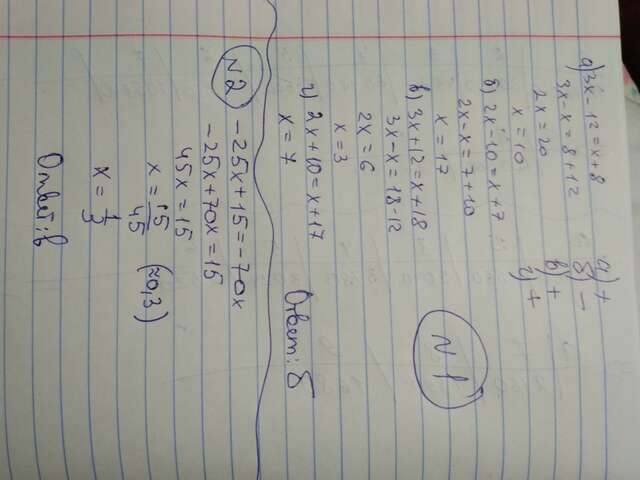 а) 3x-12=x+8
3x-x=8+12
2x=20
x=10
б) 2x-10=x+7
2x-x=7+10
x=17
в) 3x+12=x+18
3x-x=18-12
2x=6
x=3
г) 2x+10=x+17
x=7
а) +
б) -
в) +
г) +
N1
Ответ: б
N2
-25x+15=-70x
-25x+70x=15
45x=15
x=15/45 (≈0,3)
x=1/3
Ответ: в